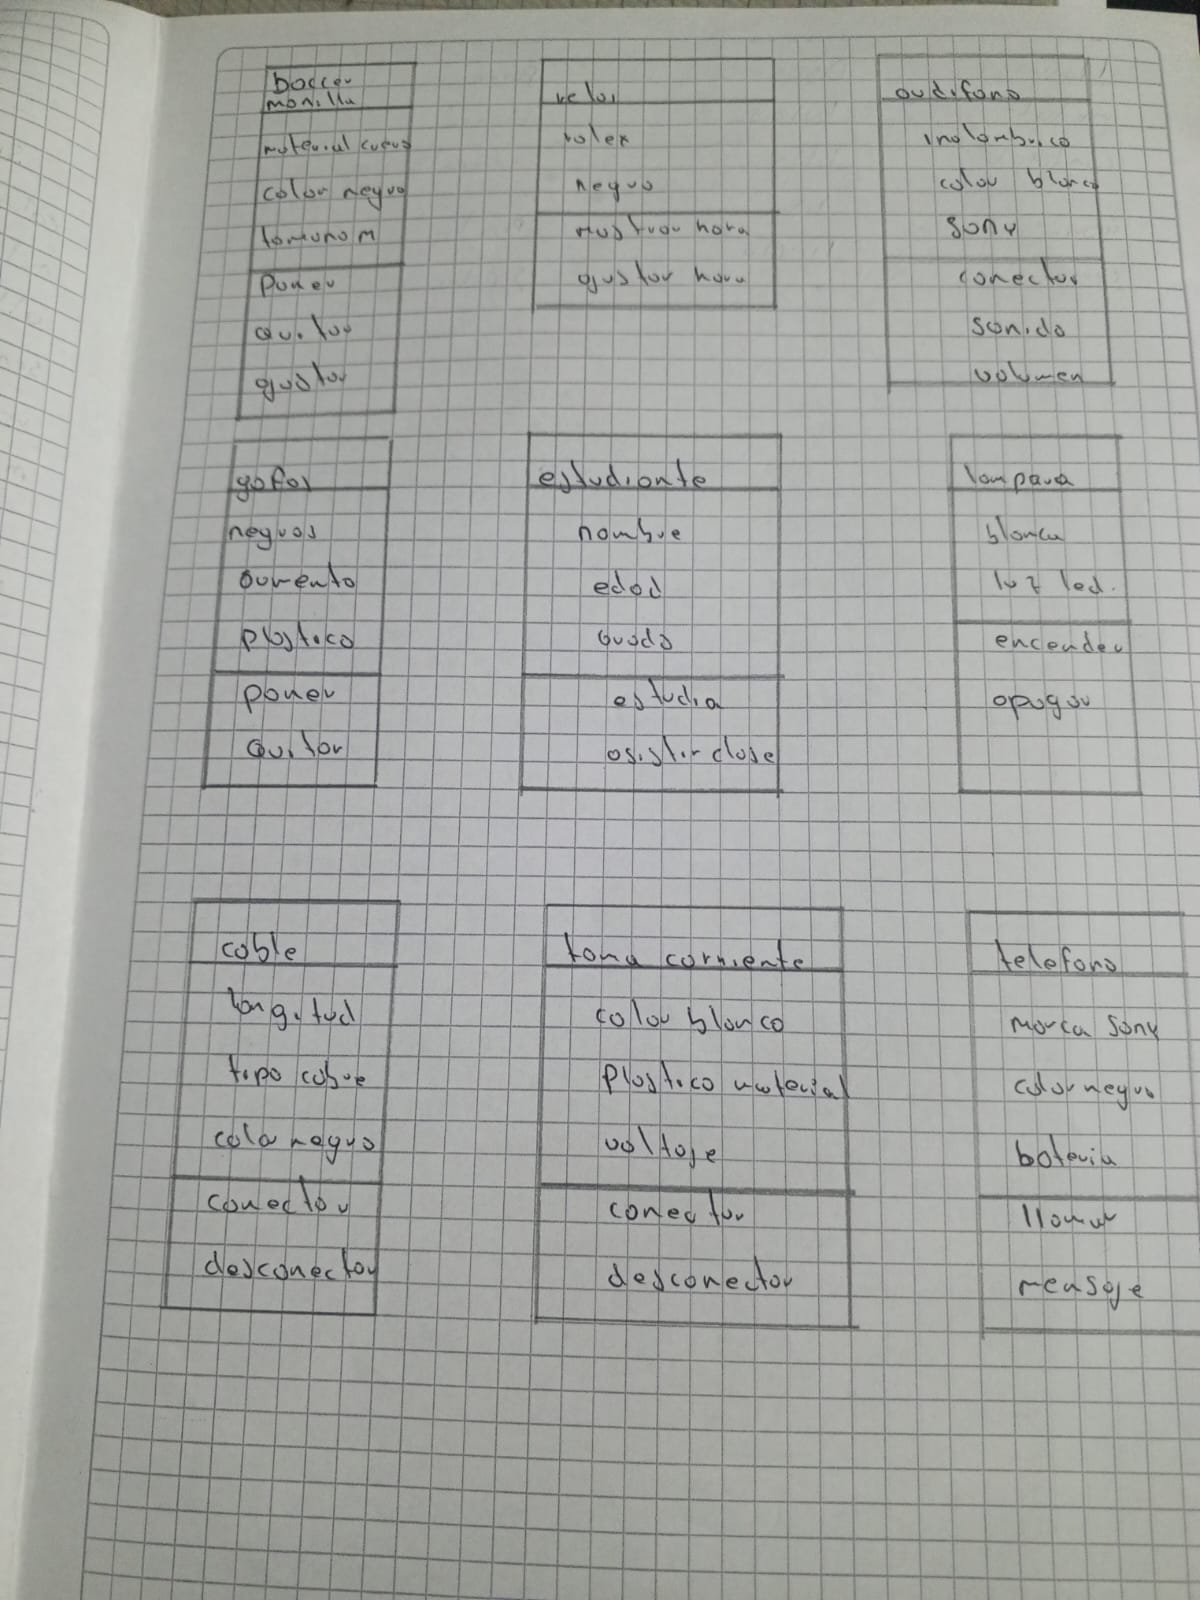 manilla
material cuero
color negro
tamano m
poner
quitar
ajustar
reloj
rolex
negro
mostrar hora
ajustar hora
audifono
inalambrico
color blanco
sony
conectar
sonido
volumen
gafas
negros
aumento
plastico
poner
quitar
estudiante
nombre
edad
grado
estudia
asistir clase
lampara
blanca
luz led.
encender
apagar
cable
longitud
tipo cobre
colo negro
conector
desconectar
toma corriente
color blanco
plastico material
voltaje
conectar
desconectar
telefono
marca sony
color negro
bateria
llamar
mensaje